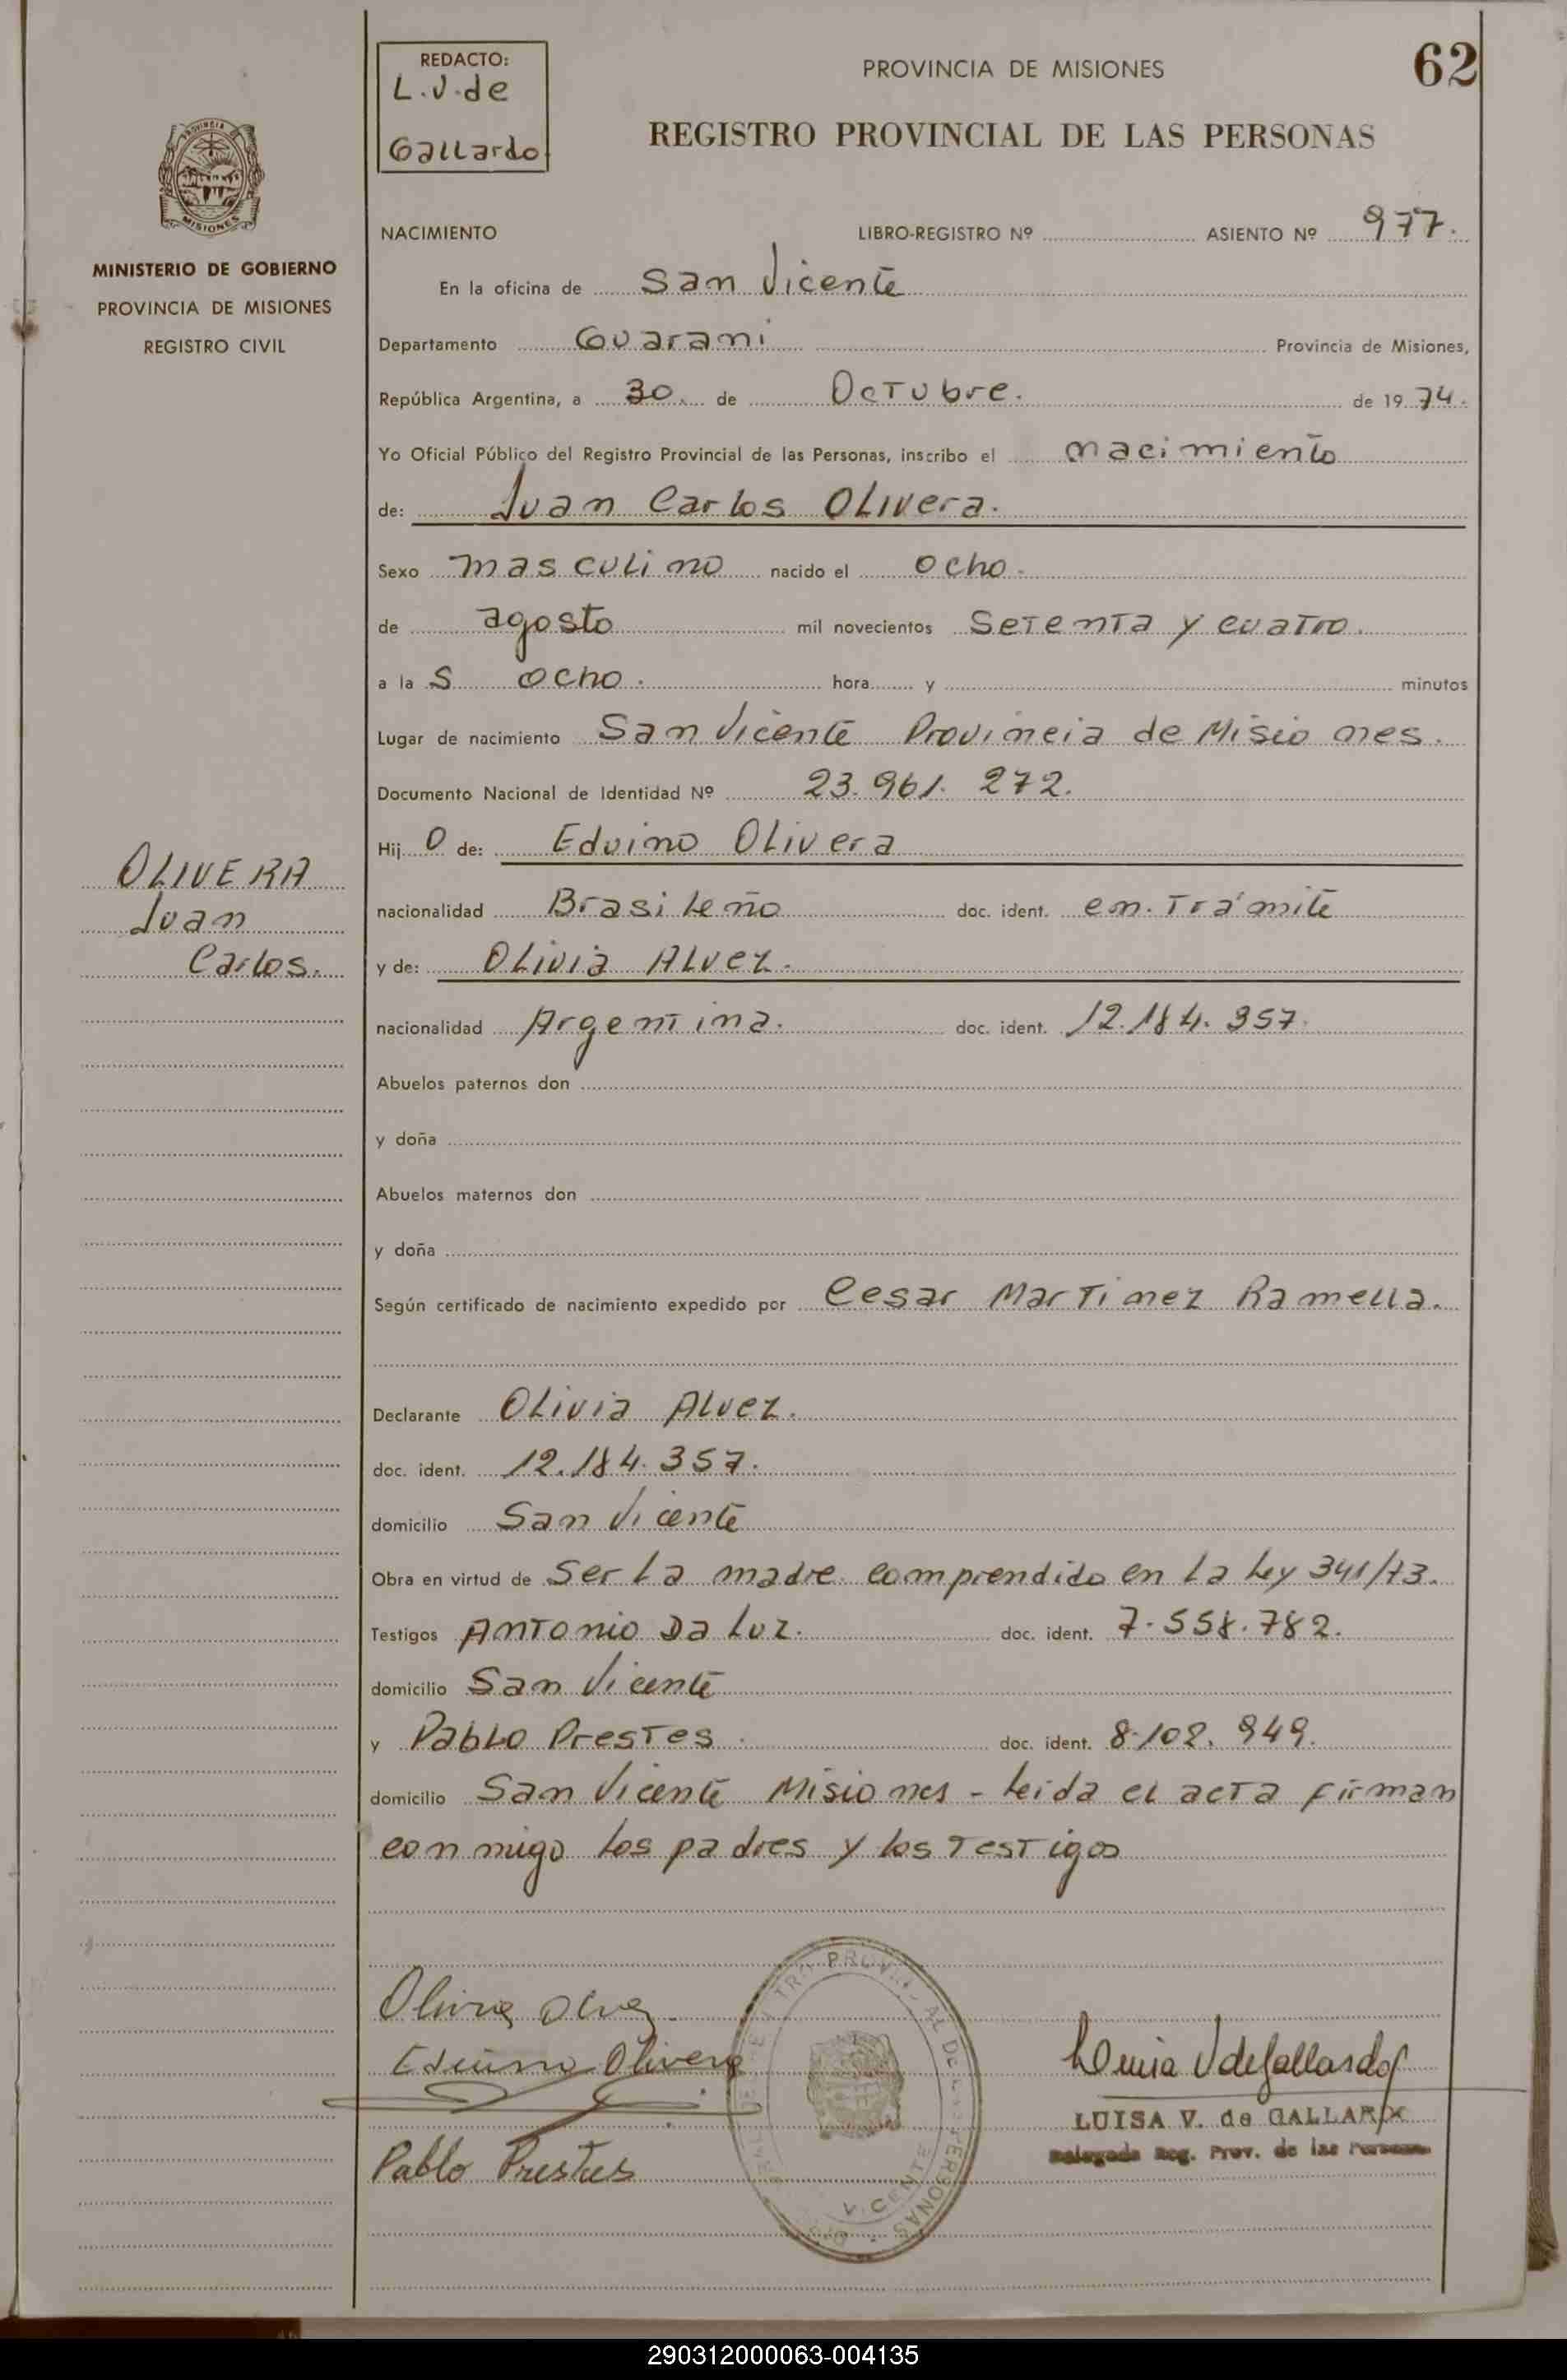 REDACTO:
L.V. de
Gallardo
PROVINCIA DE MISIONES
62
REGISTRO PROVINCIAL DE LAS PERSONAS
PROVINCIA
MISIONES
MINISTERIO DE GOBIERNO
PROVINCIA DE MISIONES
REGISTRO CIVIL
NACIMIENTO LIBRO-REGISTRO Nº ASIENTO Nº 977.
En la oficina de San Vicente
Departamento Guarani Provincia de Misiones,
República Argentina, a 30 de Octubre. de 19 74.
Yo Oficial Público del Registro Provincial de las Personas, inscribo el nacimiento
de: Juan Carlos Olivera.
Sexo masculino nacido el ocho.
de agosto mil novecientos Setenta y cuatro.
a la s ocho. hora y minutos
Lugar de nacimiento San Vicente Provincia de Misiones.
Documento Nacional de Identidad Nº 23.961.272.
Hij o de: Eduino Olivera
OLIVERA
Juan
Carlos.
nacionalidad Brasileño doc. ident. en Trámite
y de: Olivia Alvez.
nacionalidad Argentina. doc. ident. 12.184.357.
Abuelos paternos don
y doña
Abuelos maternos don
y doña
Según certificado de nacimiento expedido por Cesar Martinez Ramella.
Declarante Olivia Alvez.
doc. ident. 12.184.357.
domicilio San Vicente
Obra en virtud de Ser la madre comprendido en la Ley 341/73.
Testigos Antonio Da Luz. doc. ident. 7.558.782.
domicilio San Vicente
y Pablo Prestes. doc. ident. 8.102.949.
domicilio San Vicente Misiones - Leida el acta firman
conmigo los padres y los Testigos
Eduino Olivera
Luisa V de Gallardo
LUISA V. de GALLARDO
Delegada Reg. Prov. de las Personas
Pablo Prestes
290312000063-004135